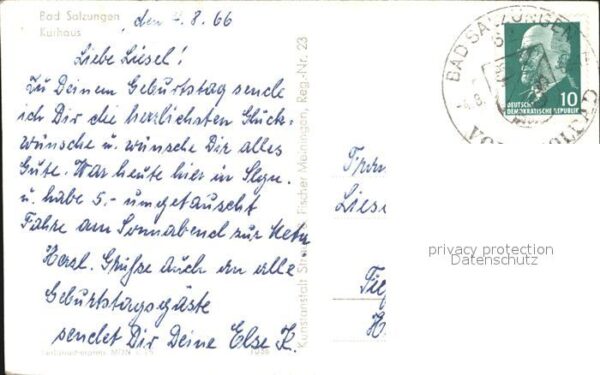 Bad Salzungen
Kurhaus
den 4.8.66
Liebe Liesel!
Zu Deinem Geburtstag sende
ich Dir die herzlichsten Glück-
wünsche u. wünsche Dir alles
Gute. War heute hier in Slgn.
u. habe 5.- umgetauscht
Fahre am Sonnabend zur
Herzl. Grüße auch an alle
Geburtstagsgäste
sendet Dir Deine Else K.
Kunstanstalt Straub & Fischer Meiningen, Reg.-Nr. 23
BAD SALZUNGEN
DEUTSCHE
DEMOKRATISCHE REPUBLIK
10
Frau
Liese
H
privacy protection
Datenschutz